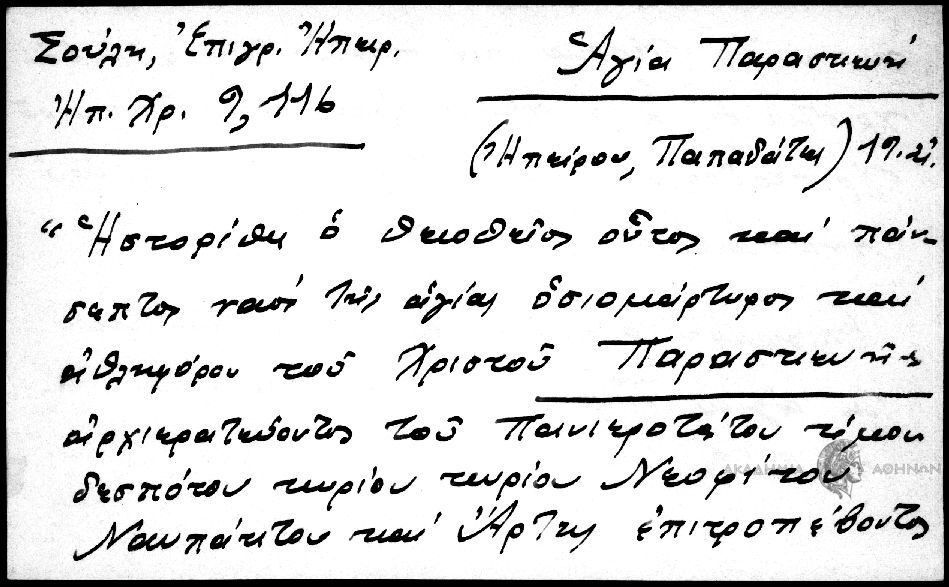 Σούλη, Ἐπιγρ. Ἠπειρ.
Ἠπ. Χρ. 9, 116
Ἁγία Παρασκευή
(Ἠπείρου, Παπαδάτες) 19. αἰ.
“Ἡστορίθη ὁ θειοθεῖος οὗτος καί πάν-
σεπτος ναός τῆς ἁγίας ὁσιομάρτυρος καί
ἀθληφόρου τοῦ Χριστοῦ Παρασκευῆς
ἀρχιερατεύοντος τοῦ Πανιεροτάτου τίμου
δεσπότου κυρίου κυρίου Νεοφίτου
Ναυπάκτου καί Ἄρτης ἐπιτροπέβοντος
ΑΚΑΔΗΜΙΑ ΑΘΗΝΩΝ